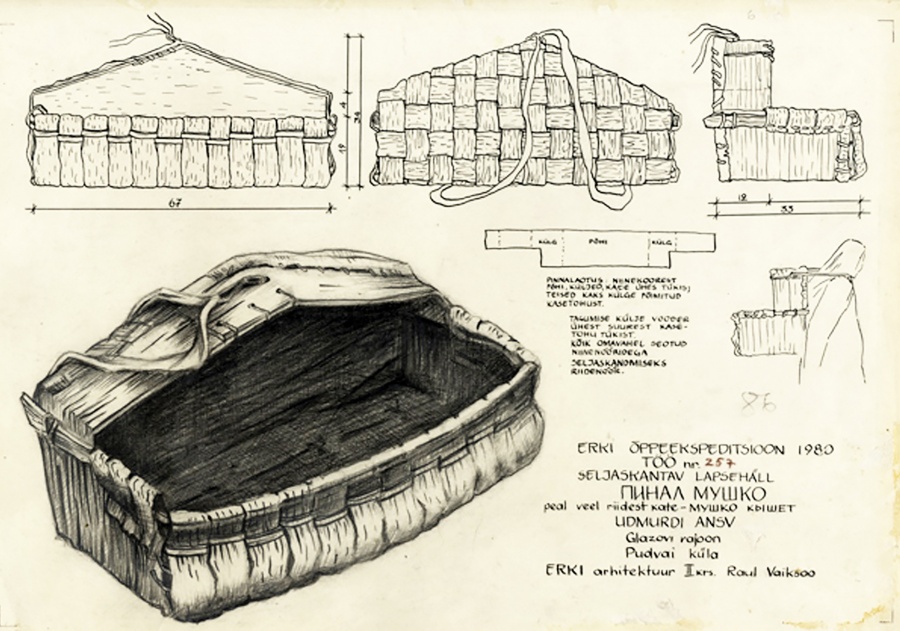 67
4
19
34
12
33
KÜLG PÕHI KÜLG
PINNALAOTUS. NIINEKOOREST
PÕHI, KÜLJED, KATE ÜHES TÜKIS;
TEISED KAKS KÜLGE PÕIMITUD
KASETOHUST.
TAGUMISE KÜLJE VOODER
ÜHEST SUUREST KASE-
TOHU TÜKIST.
KÕIK OMAVAHEL SEOTUD
NIINENÖÖRIDEGA
SELJASKANDMISEKS
RIIDENÖÖR.
86
ERKI ÕPPEEKSPEDITSIOON 1980
TÖÖ nr. 257
SELJASKANTAV LAPSEHÄLL
ПИНАЛ МУШКО
peal veel riidest kate - МУШКО КЫШЕТ
UDMURDI ANSV
Glazovi rajoon
Pudvai küla
ERKI arhitektuur II krs. Raul Vaiksoo